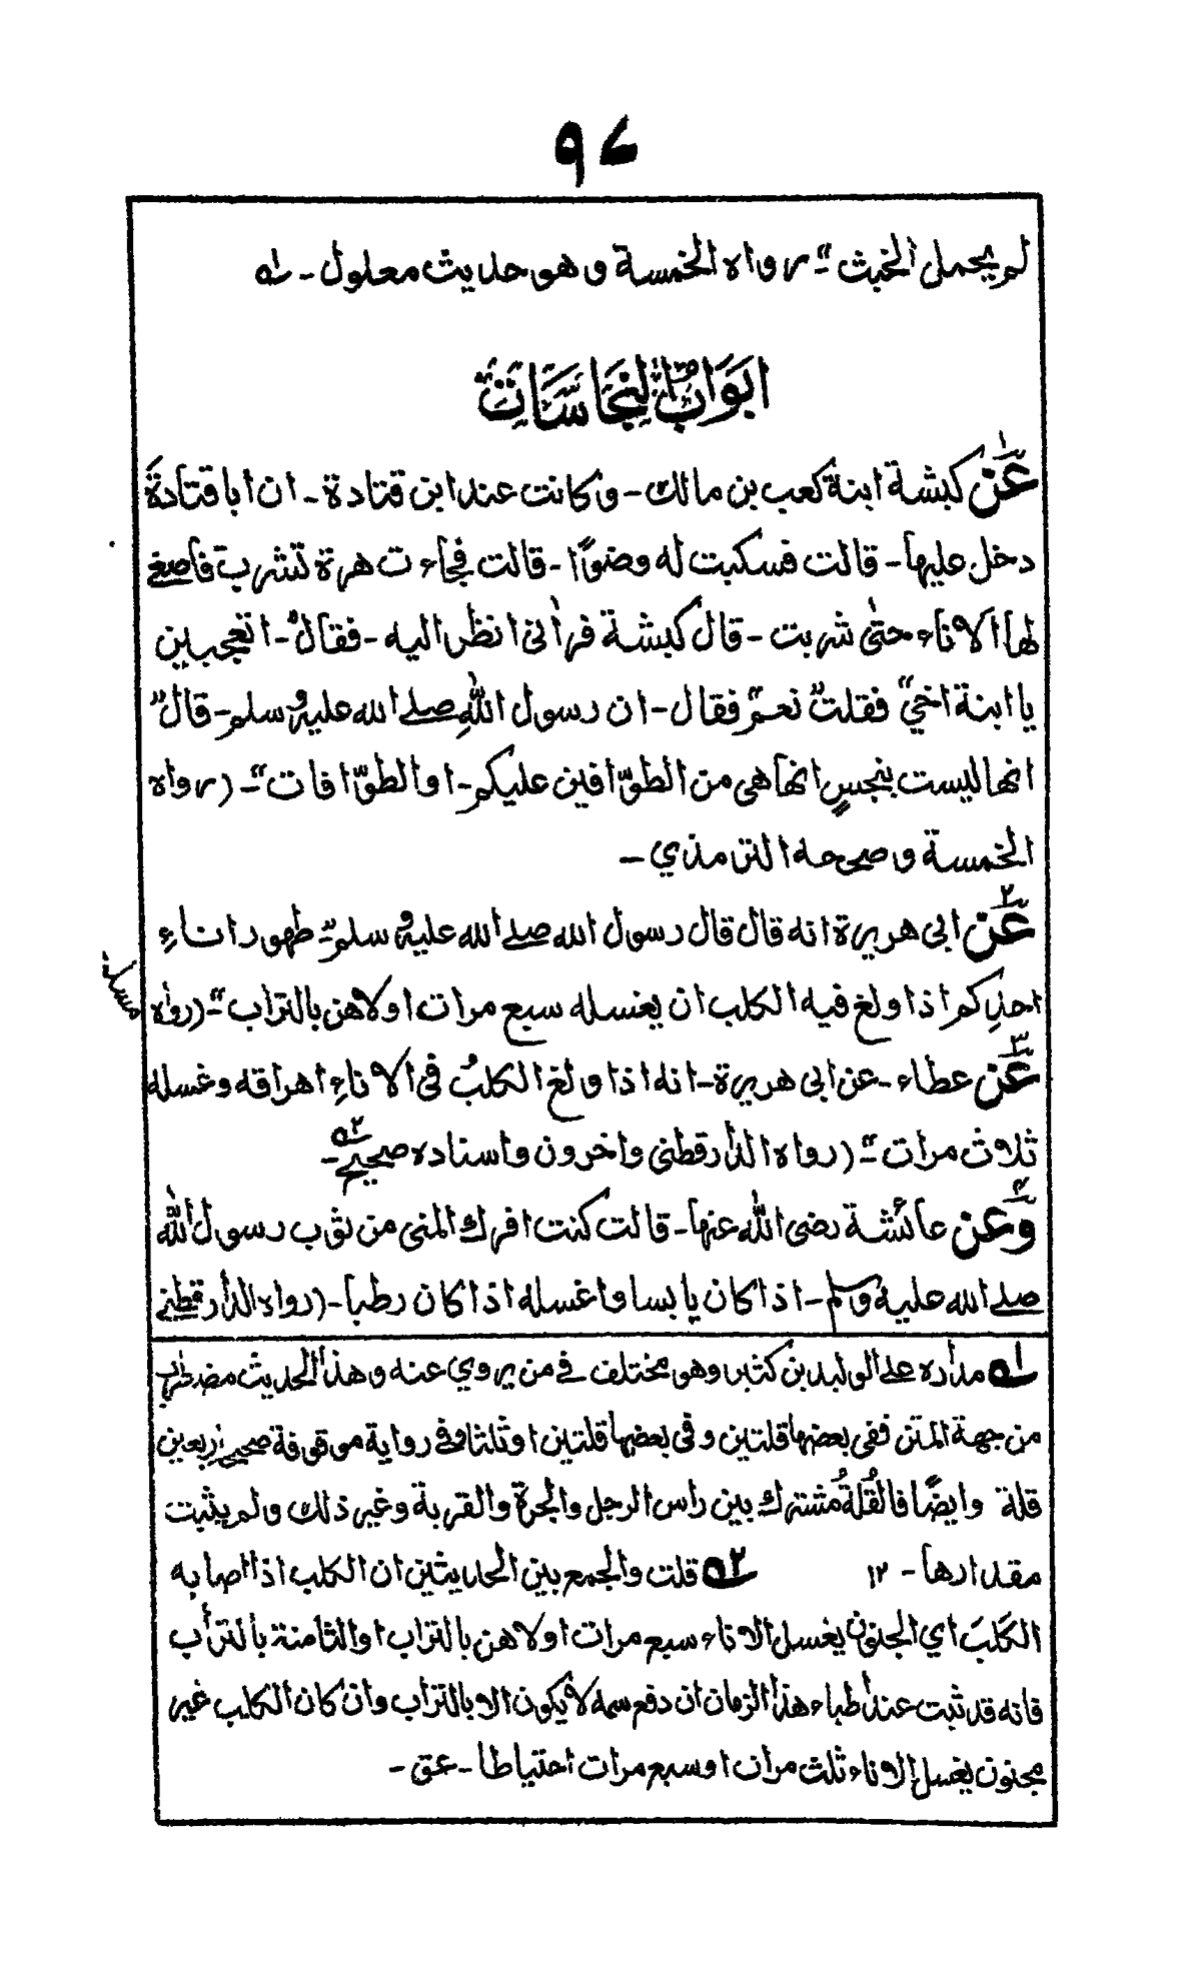 ۹۷
لم يحمل الخبث"۔ رواه الخمسة وهو حديث معلول۔ له
ابواب النجاسات
عن۱ كبشة ابنة كعب بن مالك۔ وكانت عند ابن قتادة۔ ان ابا قتادة
دخل عليها۔ قالت فسكبت له وضوًا۔ قالت فجاءت هرة تشرب فاصغے
لها الاناء حتى شربت۔ قال كبشة فراٰنى انظر اليه۔ فقال"۔ اتعجبين
يا ابنة اخي" فقلت" نعم" فقال۔ ان رسول اللهِ صلے الله عليه و سلم۔ قال"
انها ليست بنجسٍ انها هى من الطوّافين عليكم۔ اوالطوّافات"۔ (رواه
الخمسة وصححه الترمذي۔
عن۲ ابى هريرة انه قال قال رسول الله صلے الله عليه و سلم"۔ طهور اناءِ
احدِكم اذا ولغ فيه الكلب ان يغسله سبع مرات اولاهن بالتراب"۔ (رواه
مسلم
عن۳ عطاء۔ عن ابى هريرة۔ انه اذا ولغ الكلبُ فى الاناءِ اهراقه وغسله
ثلاث مرات"۔ (رواه الدارقطنى واخرون واسناده صحيح۔ ۲ه
وعن۴ عائشة رضى الله عنها۔ قالت كنت افرك المنى من ثوب رسول الله
صلے الله عليه وسلم۔ اذا كان يابسا واغسله اذا كان رطبا۔ (رواه الدارقطنے
۱ه مداره على الوليد بن كثير وهو مختلف فے من يروي عنه وهذا الحديث مضطرب
من جهة المتن ففى بعضها قلتين وفى بعضها قلتين اوثلثا وفے رواية موقوفة صحيح اربعين
قلة وايضًا فالقُلةُ مشترك بين راس الرجل والجرة والقربة وغير ذلك ولم يثبت
مقدارها۔ ۱۲ ۲ه قلت والجمع بين الحديثين ان الكلب اذا اصابه
الكَلَبَ اي الجنون يغسل الاناء سبع مرات اولاهن بالتراب اوالثامنة بالتراب
فانه قد ثبت عند اطباء هذا الزمان ان دفع سمه لا يكون الا بالتراب وان كان الكلب غير
مجنون يغسل الاناء ثلث مرات اوسبع مرات احتياطا۔ عق۔